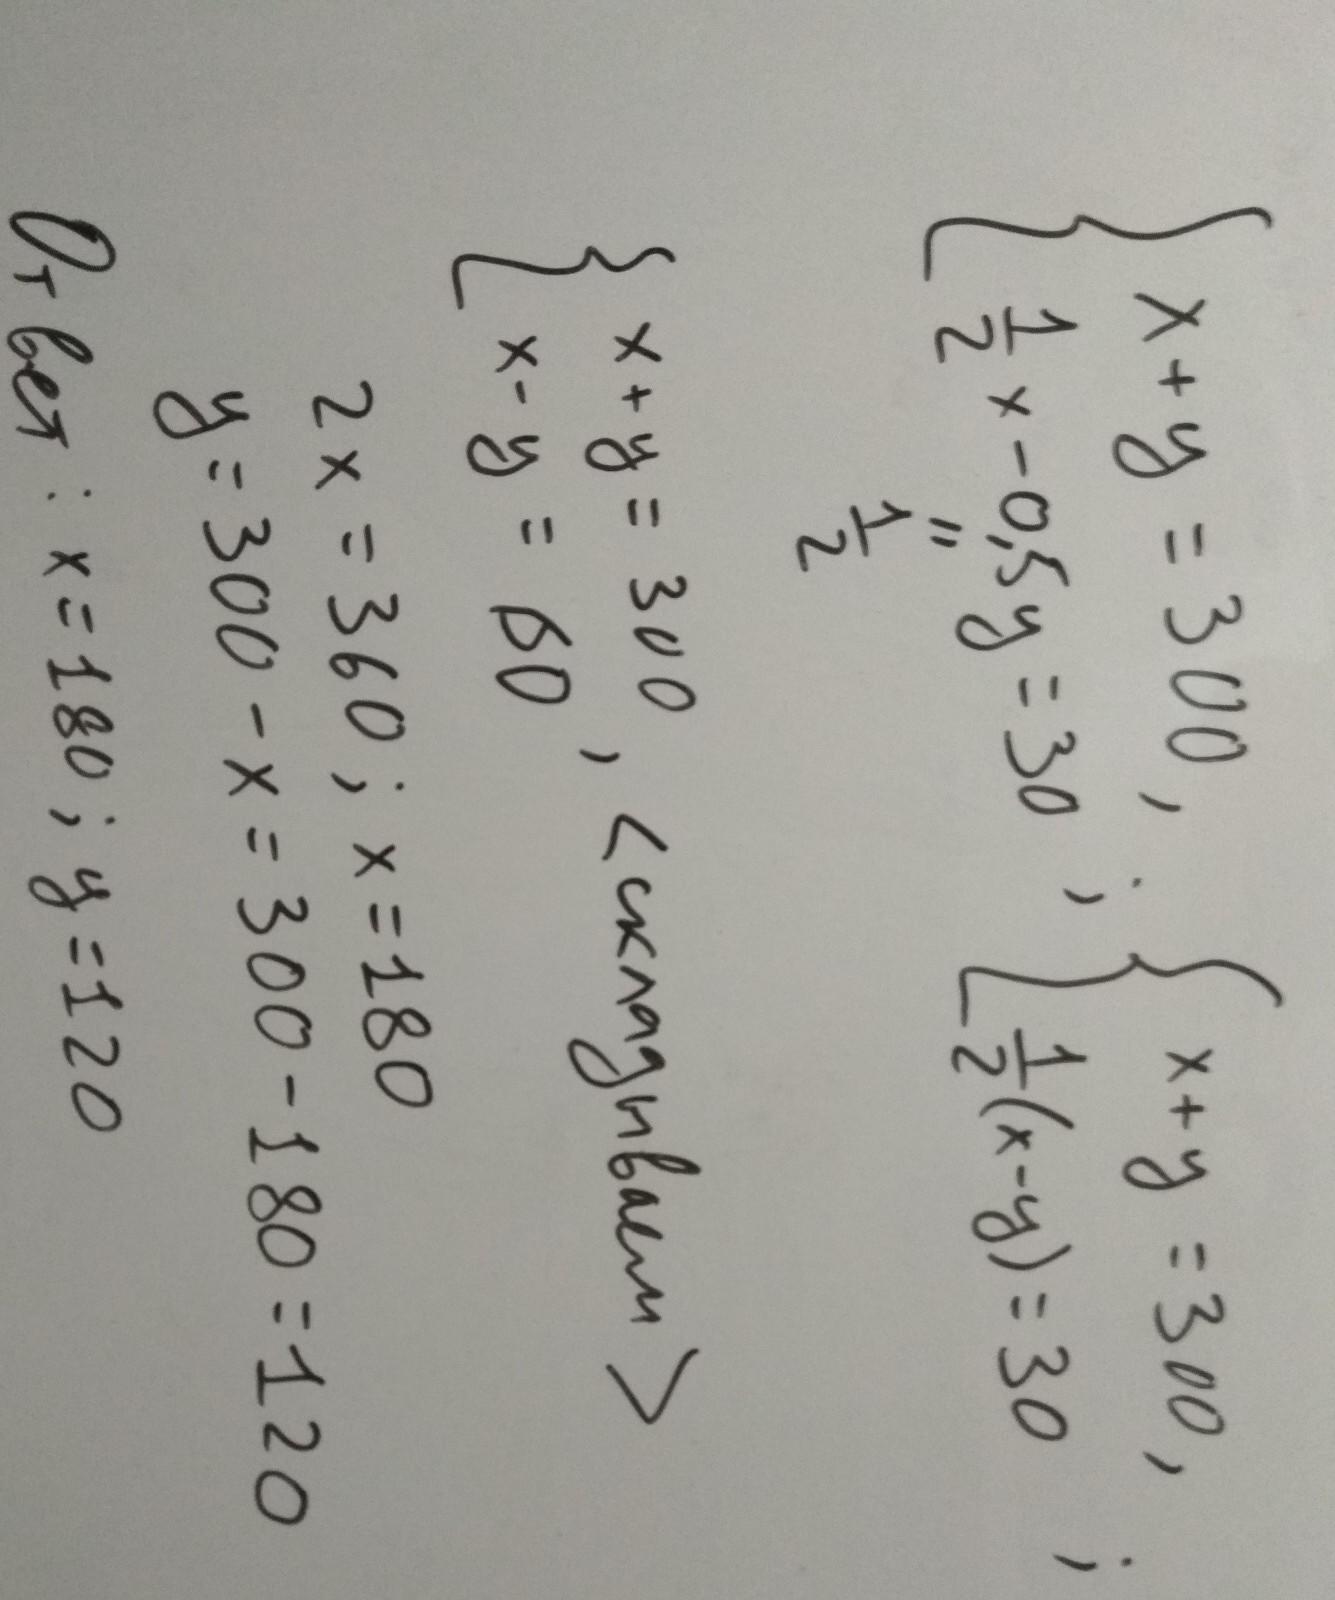 { x + y = 300, ; { x + y = 300, ;
1/2 x - 0,5y = 30 1/2 (x - y) = 30
"
1/2
{ x + y = 300
x - y = 60 , <складываем>
2x = 360 ; x = 180
y = 300 - x = 300 - 180 = 120
Ответ : x = 180 ; y = 120